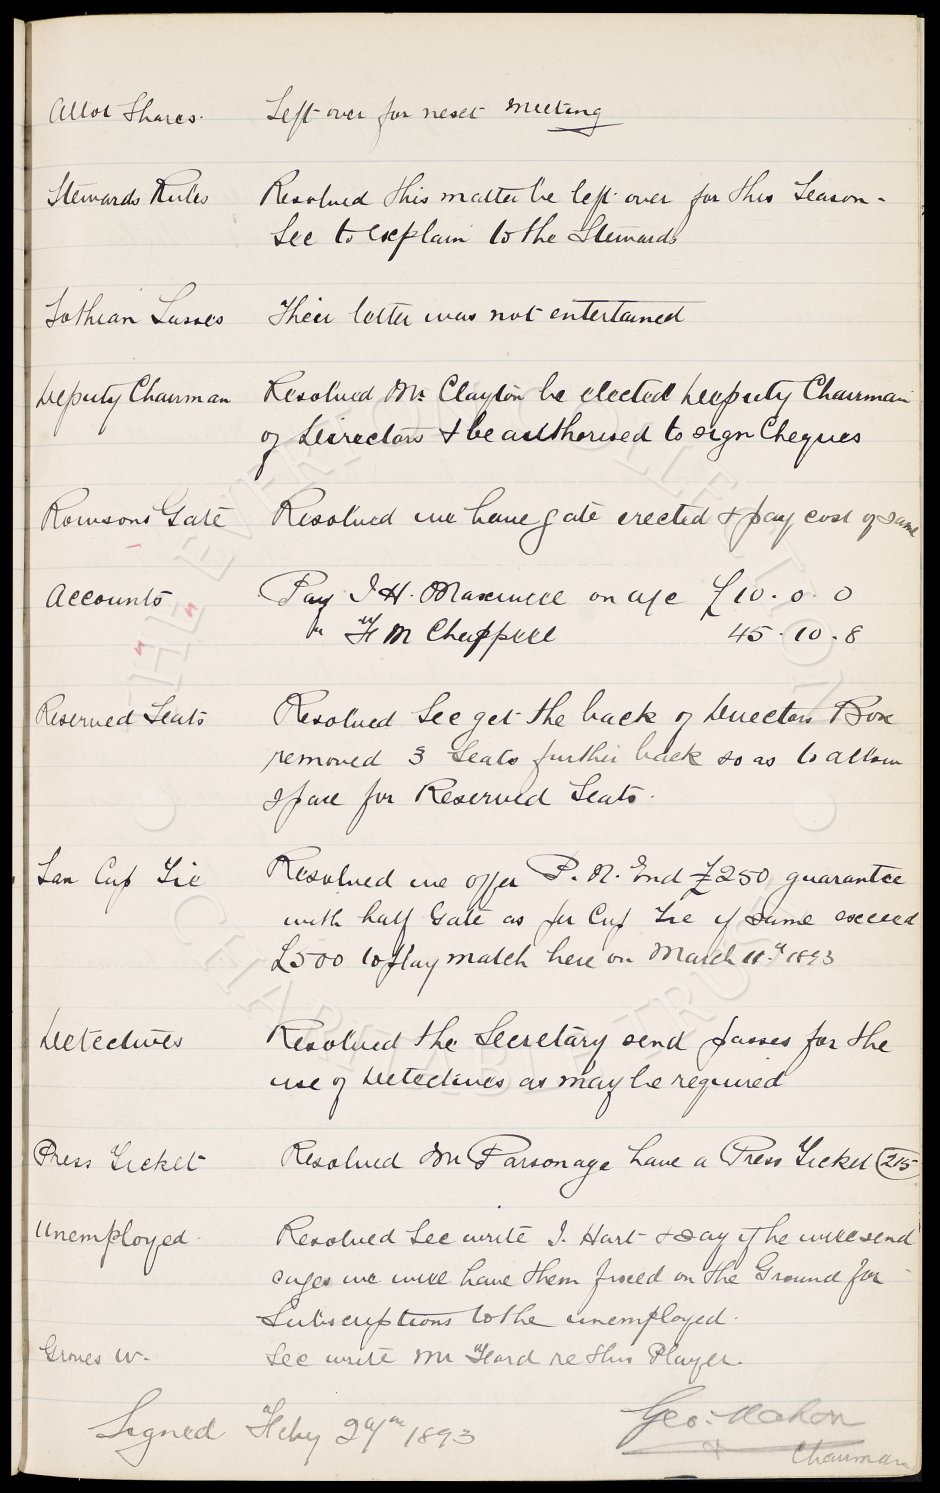 Allot Shares. Left over for next meeting
Stewards Rules Resolved this matter be left over for this Season.
Sec to explain to the Stewards
Lothian Lasses Their letter was not entertained
Deputy Chairman Resolved Mr Clayton be elected Deputy Chairman
of Directors & be authorised to sign Cheques
Rowsons Gate Resolved we have gate erected & pay cost of same
Accounts Pay J H. Maxwell on a/c £10. 0. 0
" F M Chappell 45. 10. 8
Reserved Seats Resolved Sec get the back of Directors Box
removed 3 Seats further back so as to allow
space for Reserved Seats.
Lan Cup Tie Resolved we offer P. N. End £250 guarantee
with half Gate as per Cup Tie if same exceed
£500 to play match here on March 11th 1893
Detectives Resolved the Secretary send passes for the
use of Detectives as may be required
Press Ticket Resolved Mr Parsonage have a Press Ticket 215
Unemployed. Resolved Sec write J. Hart & say if he will send
cages we will have them fixed on the Ground for
Subscriptions to the unemployed.
Groves W. Sec write Mr Ford re this Player.
Signed Feby 1893 Geo. Mahon
Chairman
THE EVERTON COLLECTION
CHARITABLE TRUST